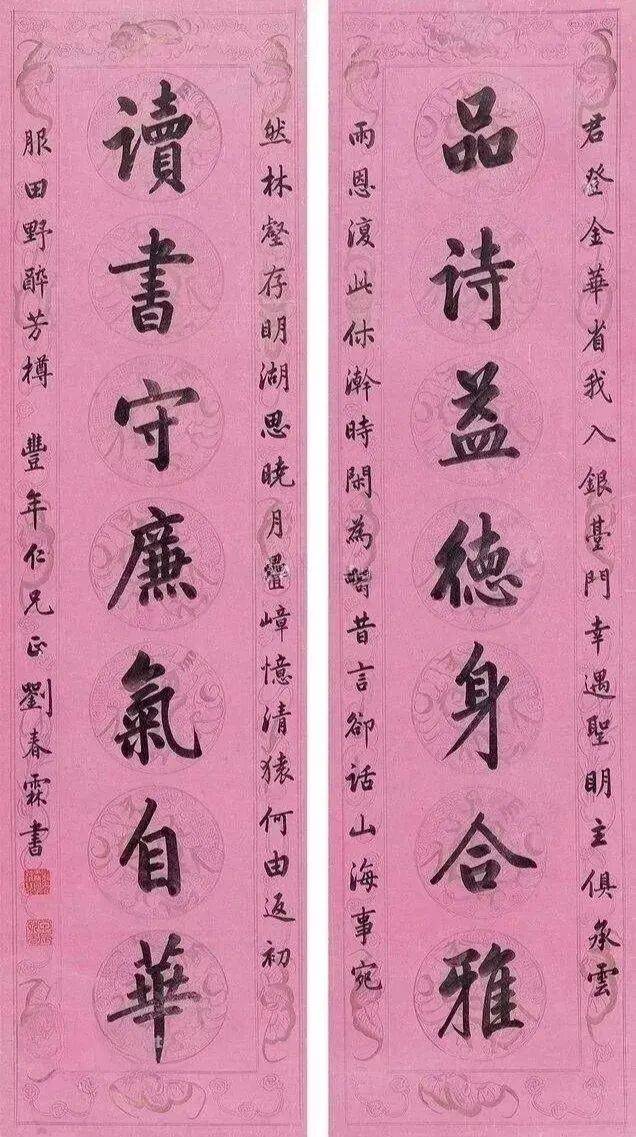 君登金華省我入銀臺門幸遇聖明主俱承雲
品诗益德身合雅
雨恩復此休澣時閑為疇昔言卻话山海事宛
然林壑存明湖思曉月疊嶂憶清猿何由返初
讀書守廉氣自華
服田野醉芳樽 豐年仁兄正 劉春霖書